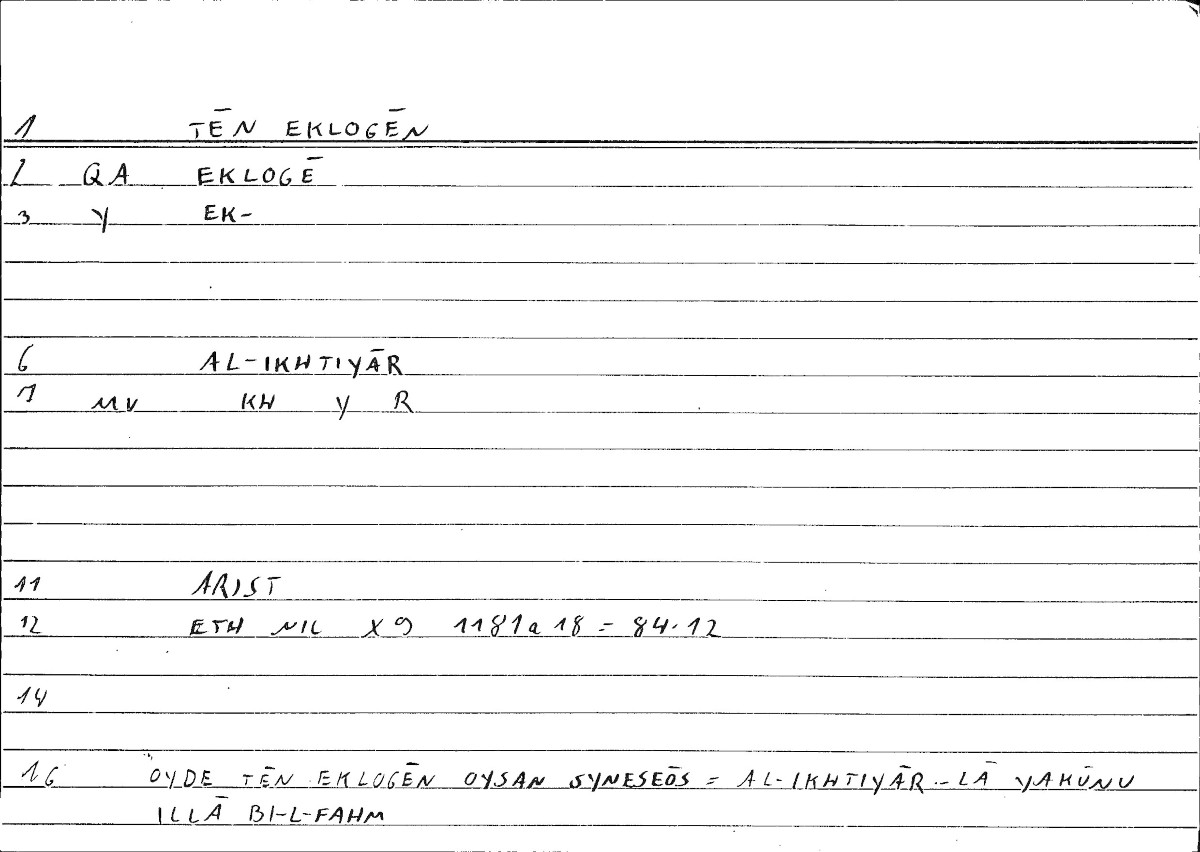 1 TĒN EKLOGĒN
2 QA EKLOGĒ
3 Y EK-
6 AL-IKHTIYĀR
7 MV KH Y R
11 ARIST
12 ETH NIC X 9 1181a 18 = 84.12
14
16 OYDE TĒN EKLOGĒN OYSAN SYNESEŌS = AL-IKHTIYĀR - LĀ YAKŪNU
ILLĀ BI-L-FAHM